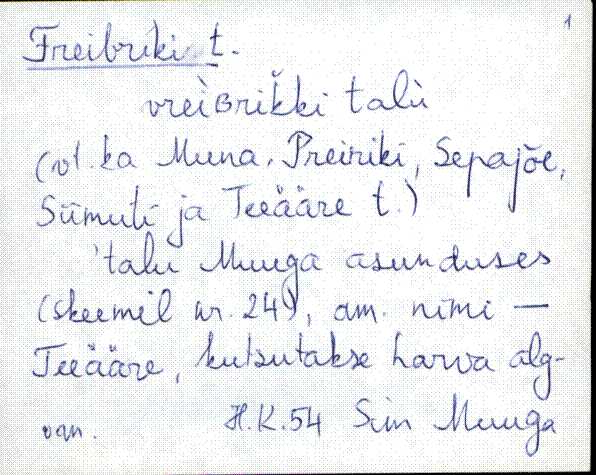 1
Freibriki t.
vreìʙrik̆ki talù
(vt. ka Muna, Preiriki, Sepajõe,
Siimuti ja Teeääre t.)
'talu Muuga asunduses
(skeemil nr. 24), am. nimi —
Teeääre, kutsutakse harva alg-
H.K.54 Sim Muuga